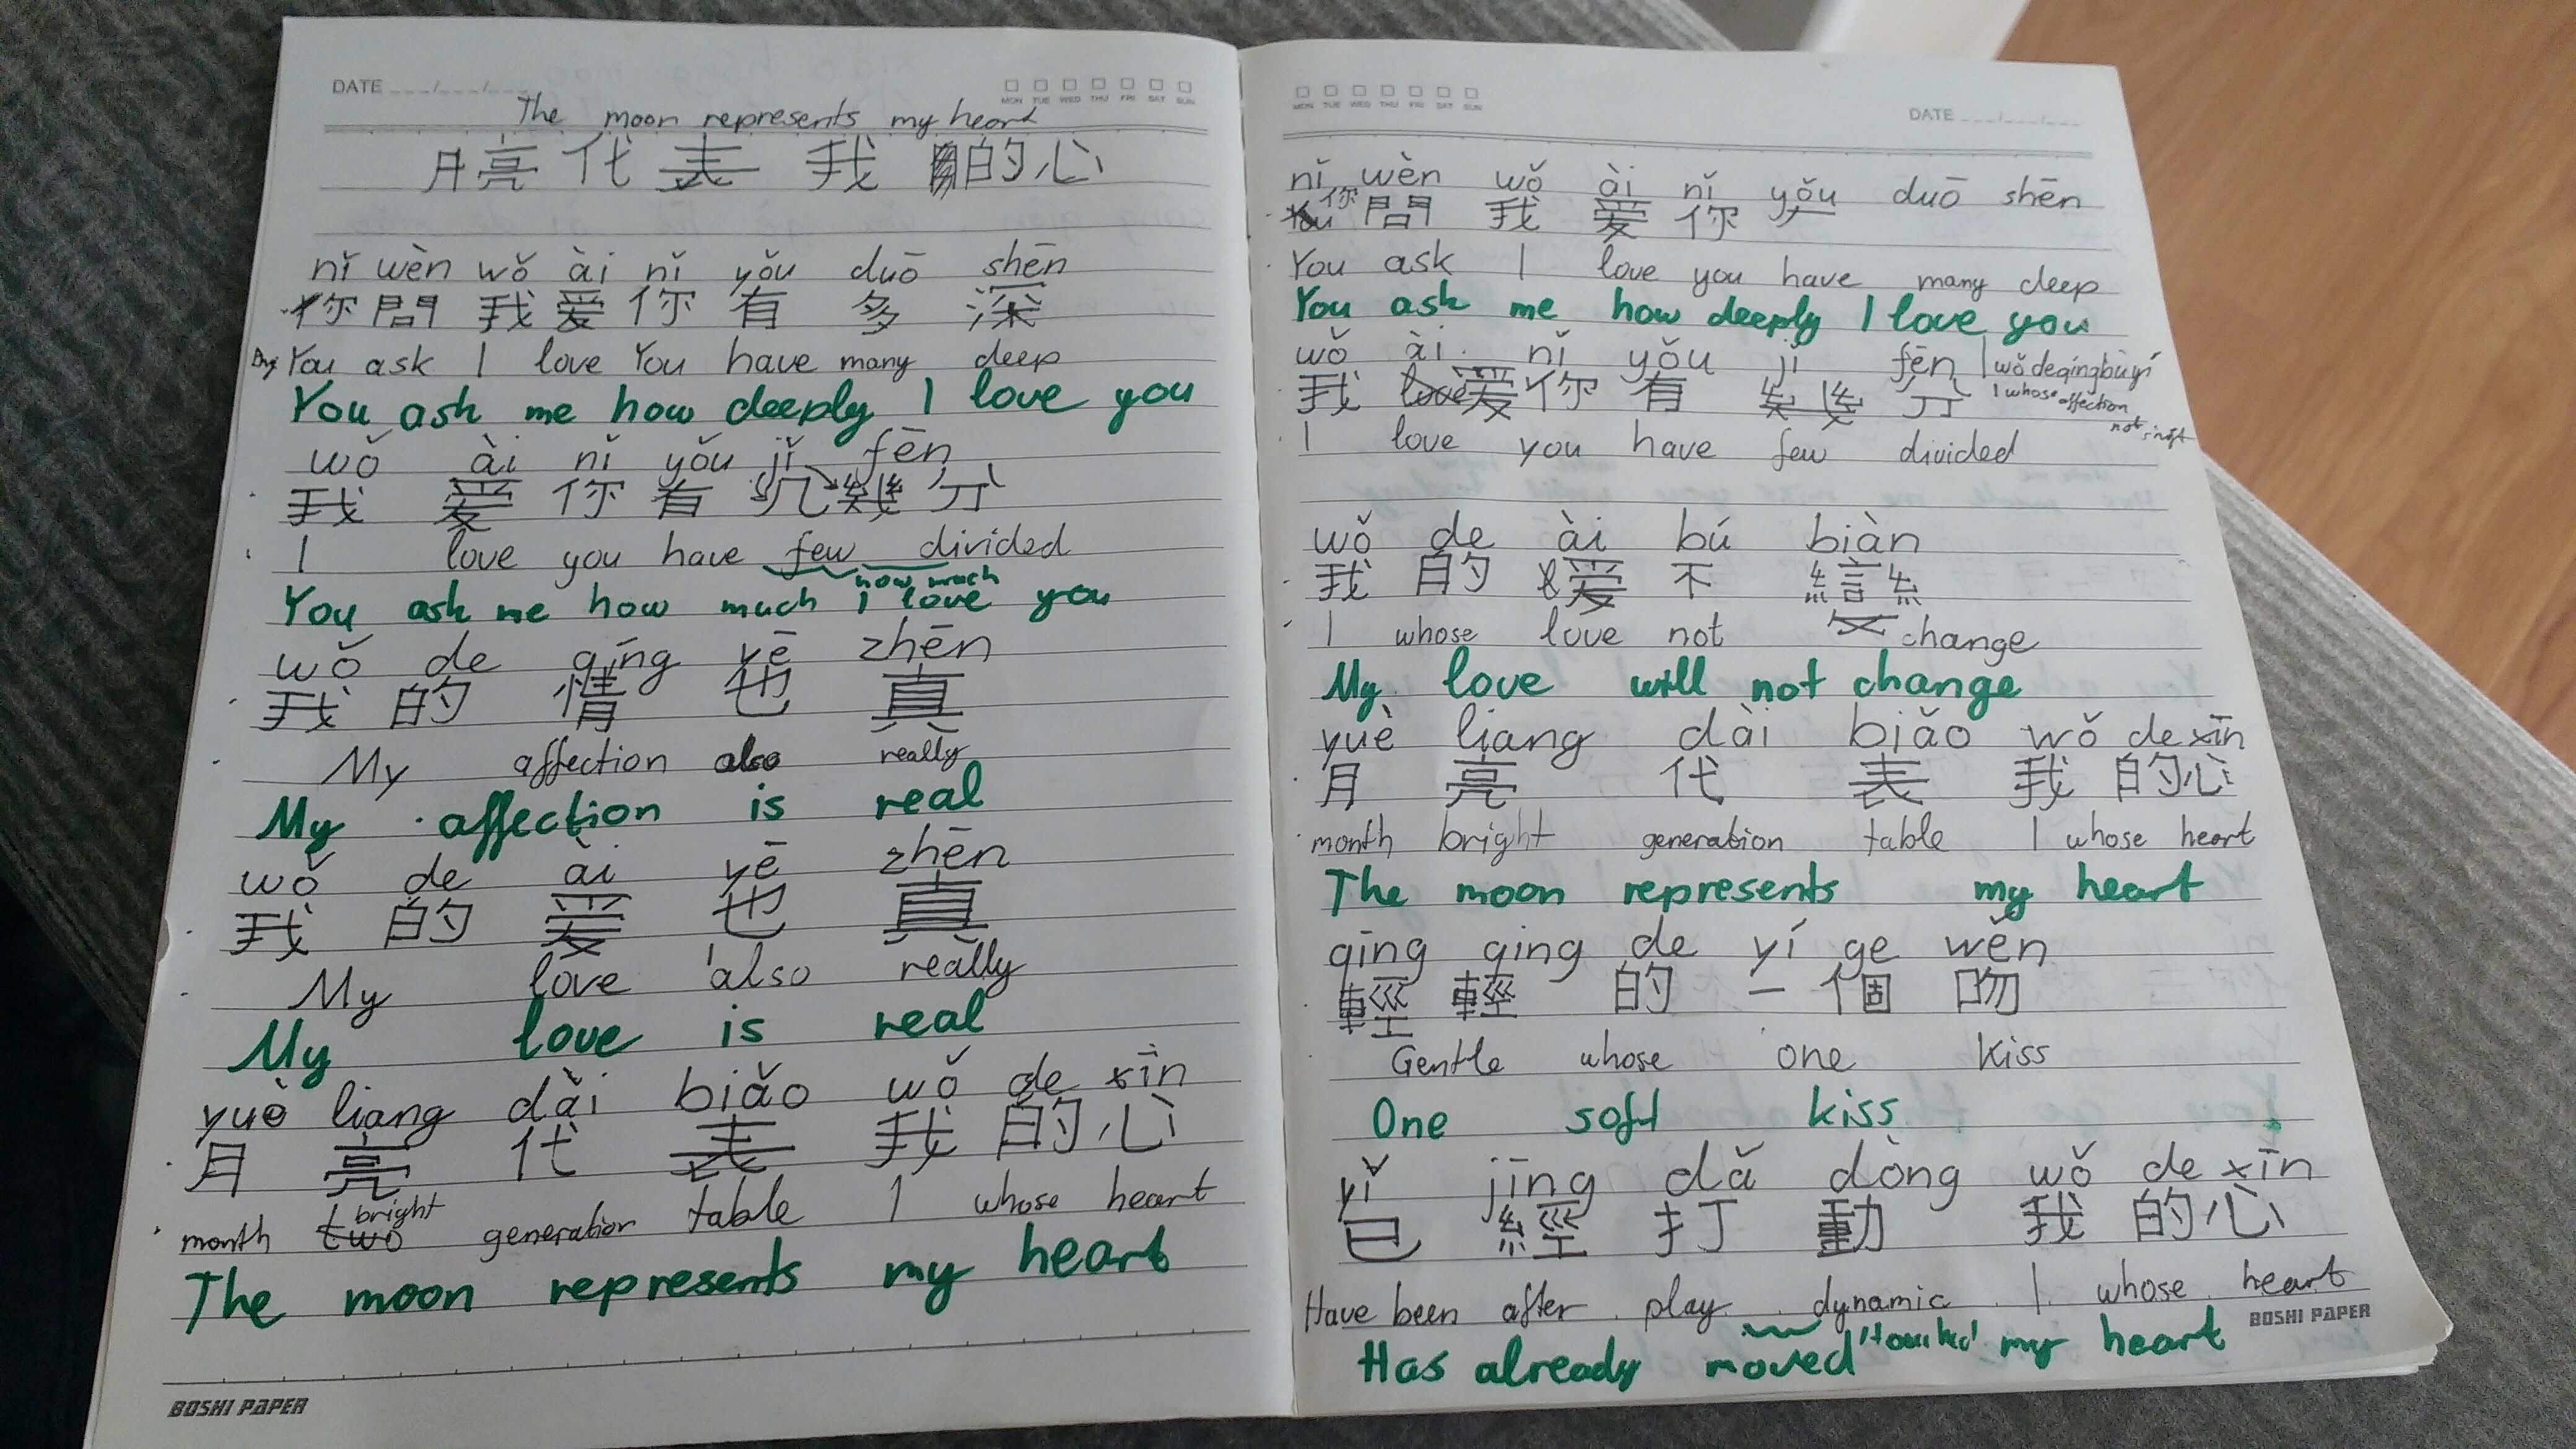 DATE ___/___/___
MON TUE WED THU FRI SAT SUN
The moon represents my heart
月亮代表我的心
nǐ wèn wǒ ài nǐ yǒu duō shēn
你問我爱你有多深
You ask I love You have many deep
You ask me how deeply I love you
wǒ ài nǐ yǒu jǐ fēn
我爱你有幾分
I love you have few divided
how much
You ask me how much I love you
wǒ de qíng yě zhēn
我的情也真
My affection also really
My affection is real
wǒ de ài yē zhēn
我的爱也真
My love also really
My love is real
yuè liang dài biǎo wǒ de xīn
月亮代表我的心
bright
month two generation table I whose heart
The moon represents my heart
BOSHI PAPER
MON TUE WED THU FRI SAT SUN
DATE ___/___/___
nǐ wèn wǒ ài nǐ yǒu duō shēn
你問我爱你
You ask I love you have many deep
You ask me how deeply I love you
wǒ ài nǐ yǒu jǐ fēn | wǒ de qíng bù yí
我 love 爱你有幾分
I whose affection
not
I love you have few divided
wǒ de ài bú biàn
我的爱不變
I whose love not change
My love will not change
yuè liang dài biǎo wǒ de xīn
月亮代表我的心
month bright generation table I whose heart
The moon represents my heart
qīng qing de yí ge wěn
輕輕的一個吻
Gentle whose one kiss
One soft kiss
yǐ jīng dǎ dòng wǒ de xīn
已經打動我的心
Have been after play dynamic I whose heart
BOSHI PAPER
Has already moved "touched" my heart